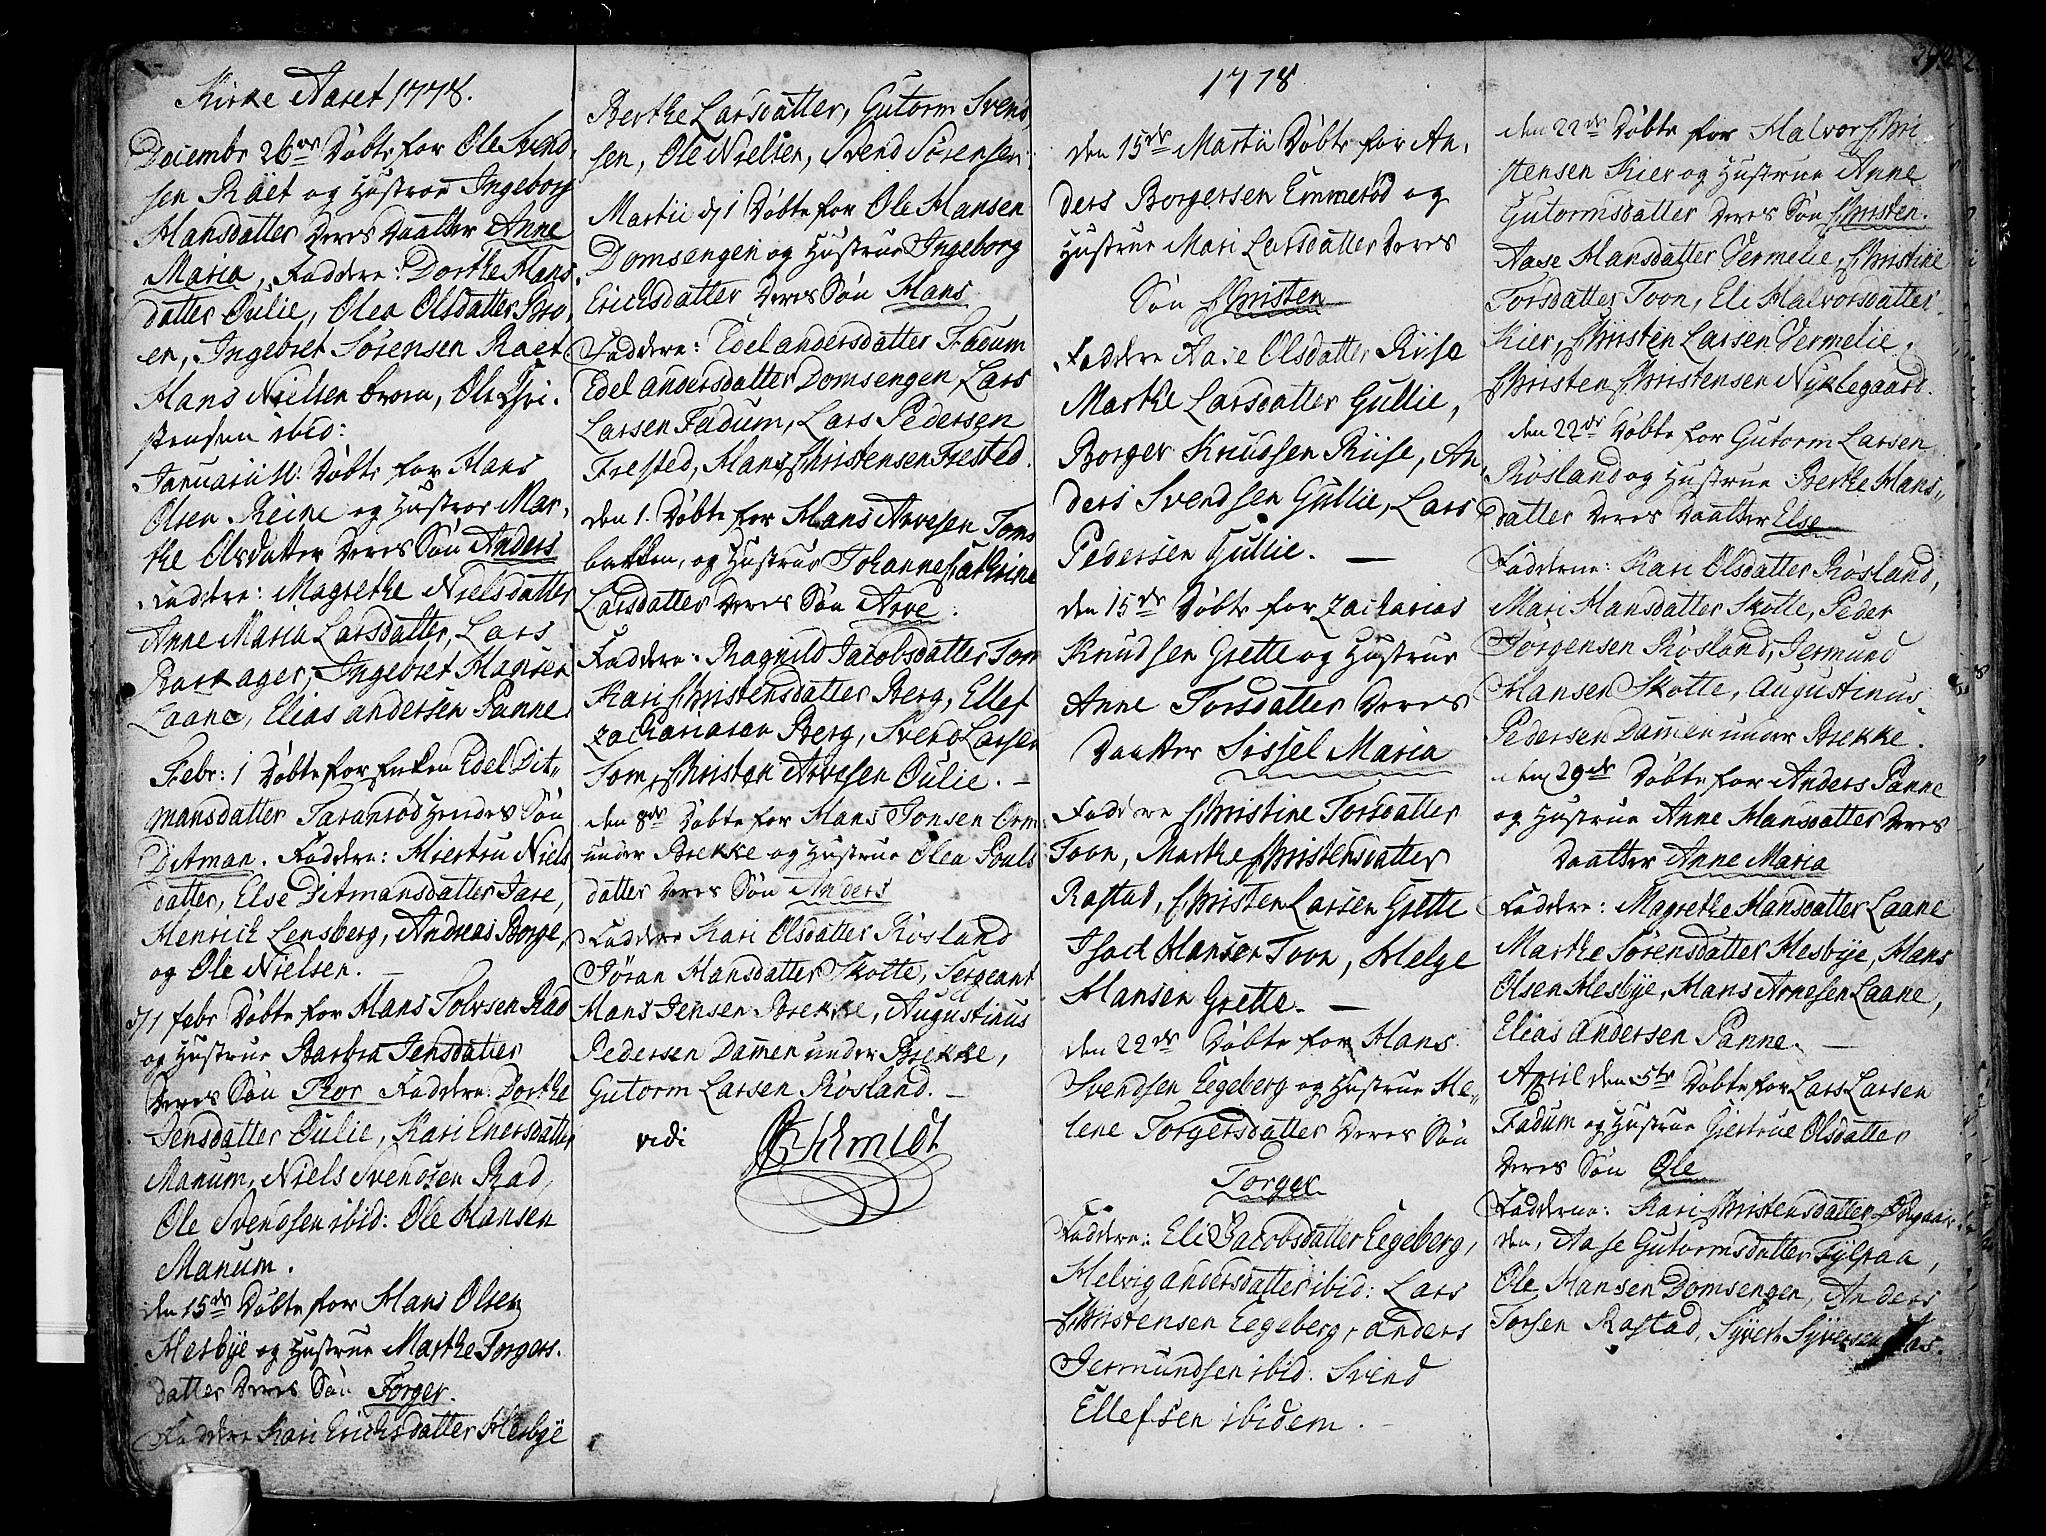 Kirke Aaret 1778.
Decembr 26de Døbte for Ole Svend,
sen Râet og Hustroe Ingeborg
Hansdatter Deres Daatter Anne
Maria, Faddere: Dorthe Hans
datter Ôulie, Olea Olsdatter Bro,
en, Ingebret Sørensen Raet
Hans Nielsen Broen, Ole Chri,
stensen ibid:
Januarii 11: Døbte for Hans
Olsen Reine og Hustroe Mar,
the Olsdatter Deres Søn Anders
Faddere: Magrethe Nielsdatter
Anne Maria Larsdatter, Lars
Barkager, Ingebret Hansen
Laane, Elias andersen Panne
Febr: 1 Døbte for Enken Edel Dit,,
mansdatter Taranrød Hendes Søn
Ditman. Faddere: Hiertru Niels
datter, Else Ditmansdatter Jare,
Henrich Lensberg, Andreas Borge,
og Ole Nielsen.
d/1 febr Døbte for Hans Tolvsen Rad
og Hustrue Barbra Jensdatter
Deres Søn Thor Faddere: Dorthe
Jensdatter Ôulie, Kari Enersdatter
Manum, Niels Svendsen Rad,
Ole Svendsen ibid: Ole Hansen
Manum.
den 15de Døbte for Hans Olsen
Hesbÿe og Hustrue Marthe Torgers.
datter Deres Søn Torger.
Faddere Kari Erichsdatter Hesbÿe
Berthe Larsdatter, Gutorm Svend,
sen, Ole Nielsen, Svend Sørensen
Martii d/1 Døbte for Ole Hansen
Domsengen og Hustrue Ingeborg
Erichsdatter Deres Søn Hans
Faddere: Edel andersdatter Fadum
Edel andersdatter Domsengen, Lars
Larsen Fadum, Lars Pedersen
Frested, Hans Christensen Frested.
den 1. Døbte for Hans Arvesen Toms
bakken, og Hustrue Johanne Cathrine
Larsdatter Deres Søn Arve:
Faddere: Ragnild Jacobsdatter Tom
Kari Christensdatter Berg, Ellef
Zachariasen Berg, Svend Larsen
Tom, Christen Arvesen Ôulie. -
den 8de Døbte for Hans Jonsen Orm
under Brekke og Hustrue Olea Pouls
datter Deres Søn Anders
Faddere Kari Olsdatter Røsland
Jøran Hansdatter Skotte, Sergeant
Hans Jensen Brekke, Augustinus
Pedersen Damen under Brekke,
Gutorm Larsen Røsland. -
vidi Schmidt
1778
den 15de Martii Døbte for An,
ders Borgersen Emmerød og
Hustrue Mari Larsdatter Deres
Søn Christen
Faddere Aase Olsdatter Riise
Marthe Larsdatter Gullie,
Borger Knudsen Riise, An,
ders Svendsen Gullie, Lars
Pedersen Gullie. -
den 15de Døbte for Zacharias
Knudsen Grette og Hustrue
Anne Torsdatter Deres
Daatter Sissel Maria
Faddere Christine Torsdatter
Toon, Marthe Christensdatter
Rastad, Christen Larsen Grette
Isach Hansen Toon, Helge
Hansen Grette. -
den 22de Døbte for Hans
Svendsen Eegeberg og Hustrue He,,
lene Torgersdatter Deres Søn
Torger
Faddere: Eli Jacobsdatter Eegeberg,
Helvig andersdatter ibid: Lars
Christensen Eegeberg, anders
Jermundsen ibid: Svend
Ellefsen ibidem.
392
den 22de Døbte for Halvor Chri
stensen Kier og Hustrue Anne
Gutormsdatter Deres Søn Christen.
Aase Hansdatter Vermelie, Christine
Torsdatter Toon, Eli Halvorsdatter
Kier, Christen Larsen Vermelie,
Christen Christensen Nyklegaard.
den 22de Døbte for Gutorm Larsen
Røsland og Hustrue Berthe Hans,,
datter Deres Daatter Else
Fadderne: Kari Olsdatter Røsland,
Mari Hansdatter Skotte, Peder
Jørgensen Røsland, Jermund
Hansen Skotte, Augustinus
Pedersen Damen under Brekke.
den 29de Døbte for Anders Panne
og Hustrue Anne Hansdatter Deres
Daatter Anne Maria
Faddere: Magrethe Hansdatter Laane
Marthe Sørensdatter Hesbÿe, Hans
Olsen Hesbÿe, Hans Arnesen Laane,
Elias andersen Panne. -
April den 5te Døbte for Lars Larsen
Fadum og Hustrue Giertrue Olsdatter
Deres Søn Ole
Fadderne: Kari Christensdatter Ødegaar,
den, Aase Gutormsdatter Fÿlpaa,
Ole Hansen Domsengen, Anders
Torsen Rastad, Sÿvert Sÿversen Aas.